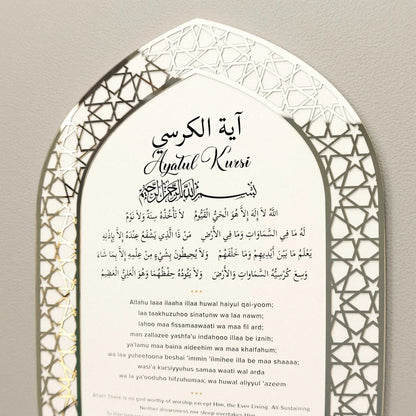 آية الكرسي
Ayatul Kursi
بسم الله الرحمن الرحيم
اللهُ لاَ إِلَهَ إِلاَّ هُوَ الْحَيُّ الْقَيُّومُ لاَ تَأْخُذُهُ سِنَةٌ وَلاَ نَوْمٌ
لَهُ مَا فِي السَّمَاوَاتِ وَمَا فِي الأَرْضِ مَنْ ذَا الَّذِي يَشْفَعُ عِنْدَهُ إِلاَّ بِإِذْنِهِ
يَعْلَمُ مَا بَيْنَ أَيْدِيهِمْ وَمَا خَلْفَهُمْ وَلاَ يُحِيطُونَ بِشَيْءٍ مِنْ عِلْمِهِ إِلاَّ بِمَا شَاءَ
وَسِعَ كُرْسِيُّهُ السَّمَاوَاتِ وَالأَرْضَ وَلاَ يَئُودُهُ حِفْظُهُمَا وَهُوَ الْعَلِيُّ الْعَظِيمُ
Allahu laaa ilaaha illaa huwal haiyul qai-yoom;
laa taakhuzuhoo sinatunw wa laa nawm;
lahoo maa fissamaawaati wa maa fil ard;
man zallazee yashfa'u indahooo illaa be iznih;
ya'lamu maa baina aideehim wa maa khalfahum;
wa laa yuheetoona beshai 'immin 'ilmihee illa be maa shaaaa;
wasi'a kursiyyuhus samaa waati wal ard
wa la ya'ooduho hifzuhumaa; wa huwal aliyyul 'azeem
Allah! There is no god worthy of worship except Him, the Ever Living, All Sustaining.
Neither drowsiness nor sleep overtakes Him.